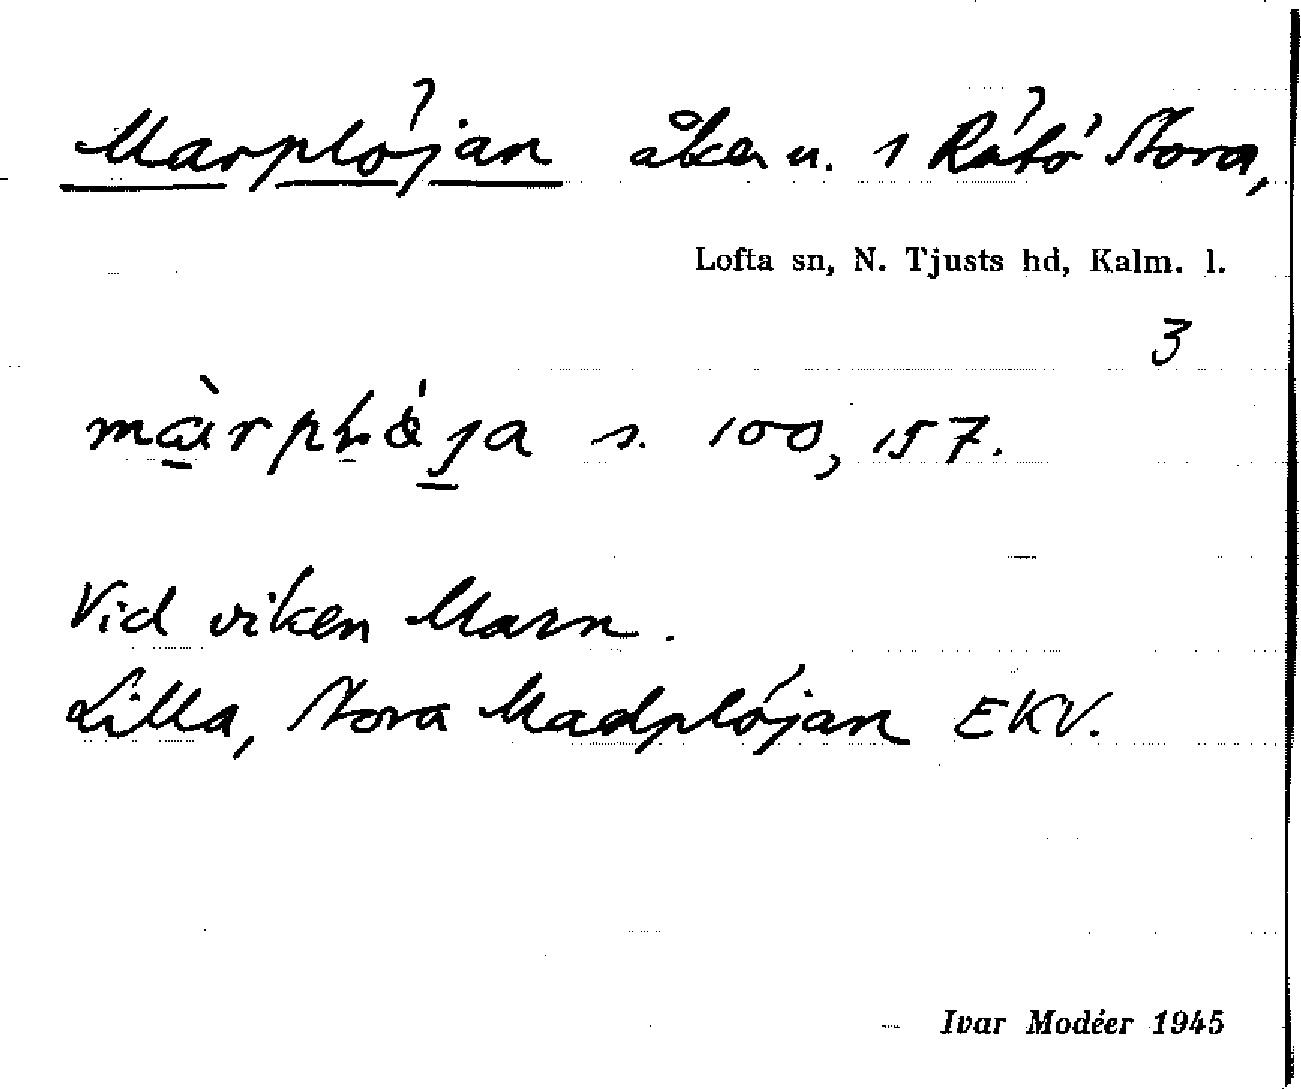 Marplöjan åker u. 1 Råtö Stora,
Lofta sn, N. Tjusts hd, Kalm. l.
3
s. 100, 157.
Vid viken Marn.
Lilla, Stora Madplöjan EKV.
Ivar Modéer 1945